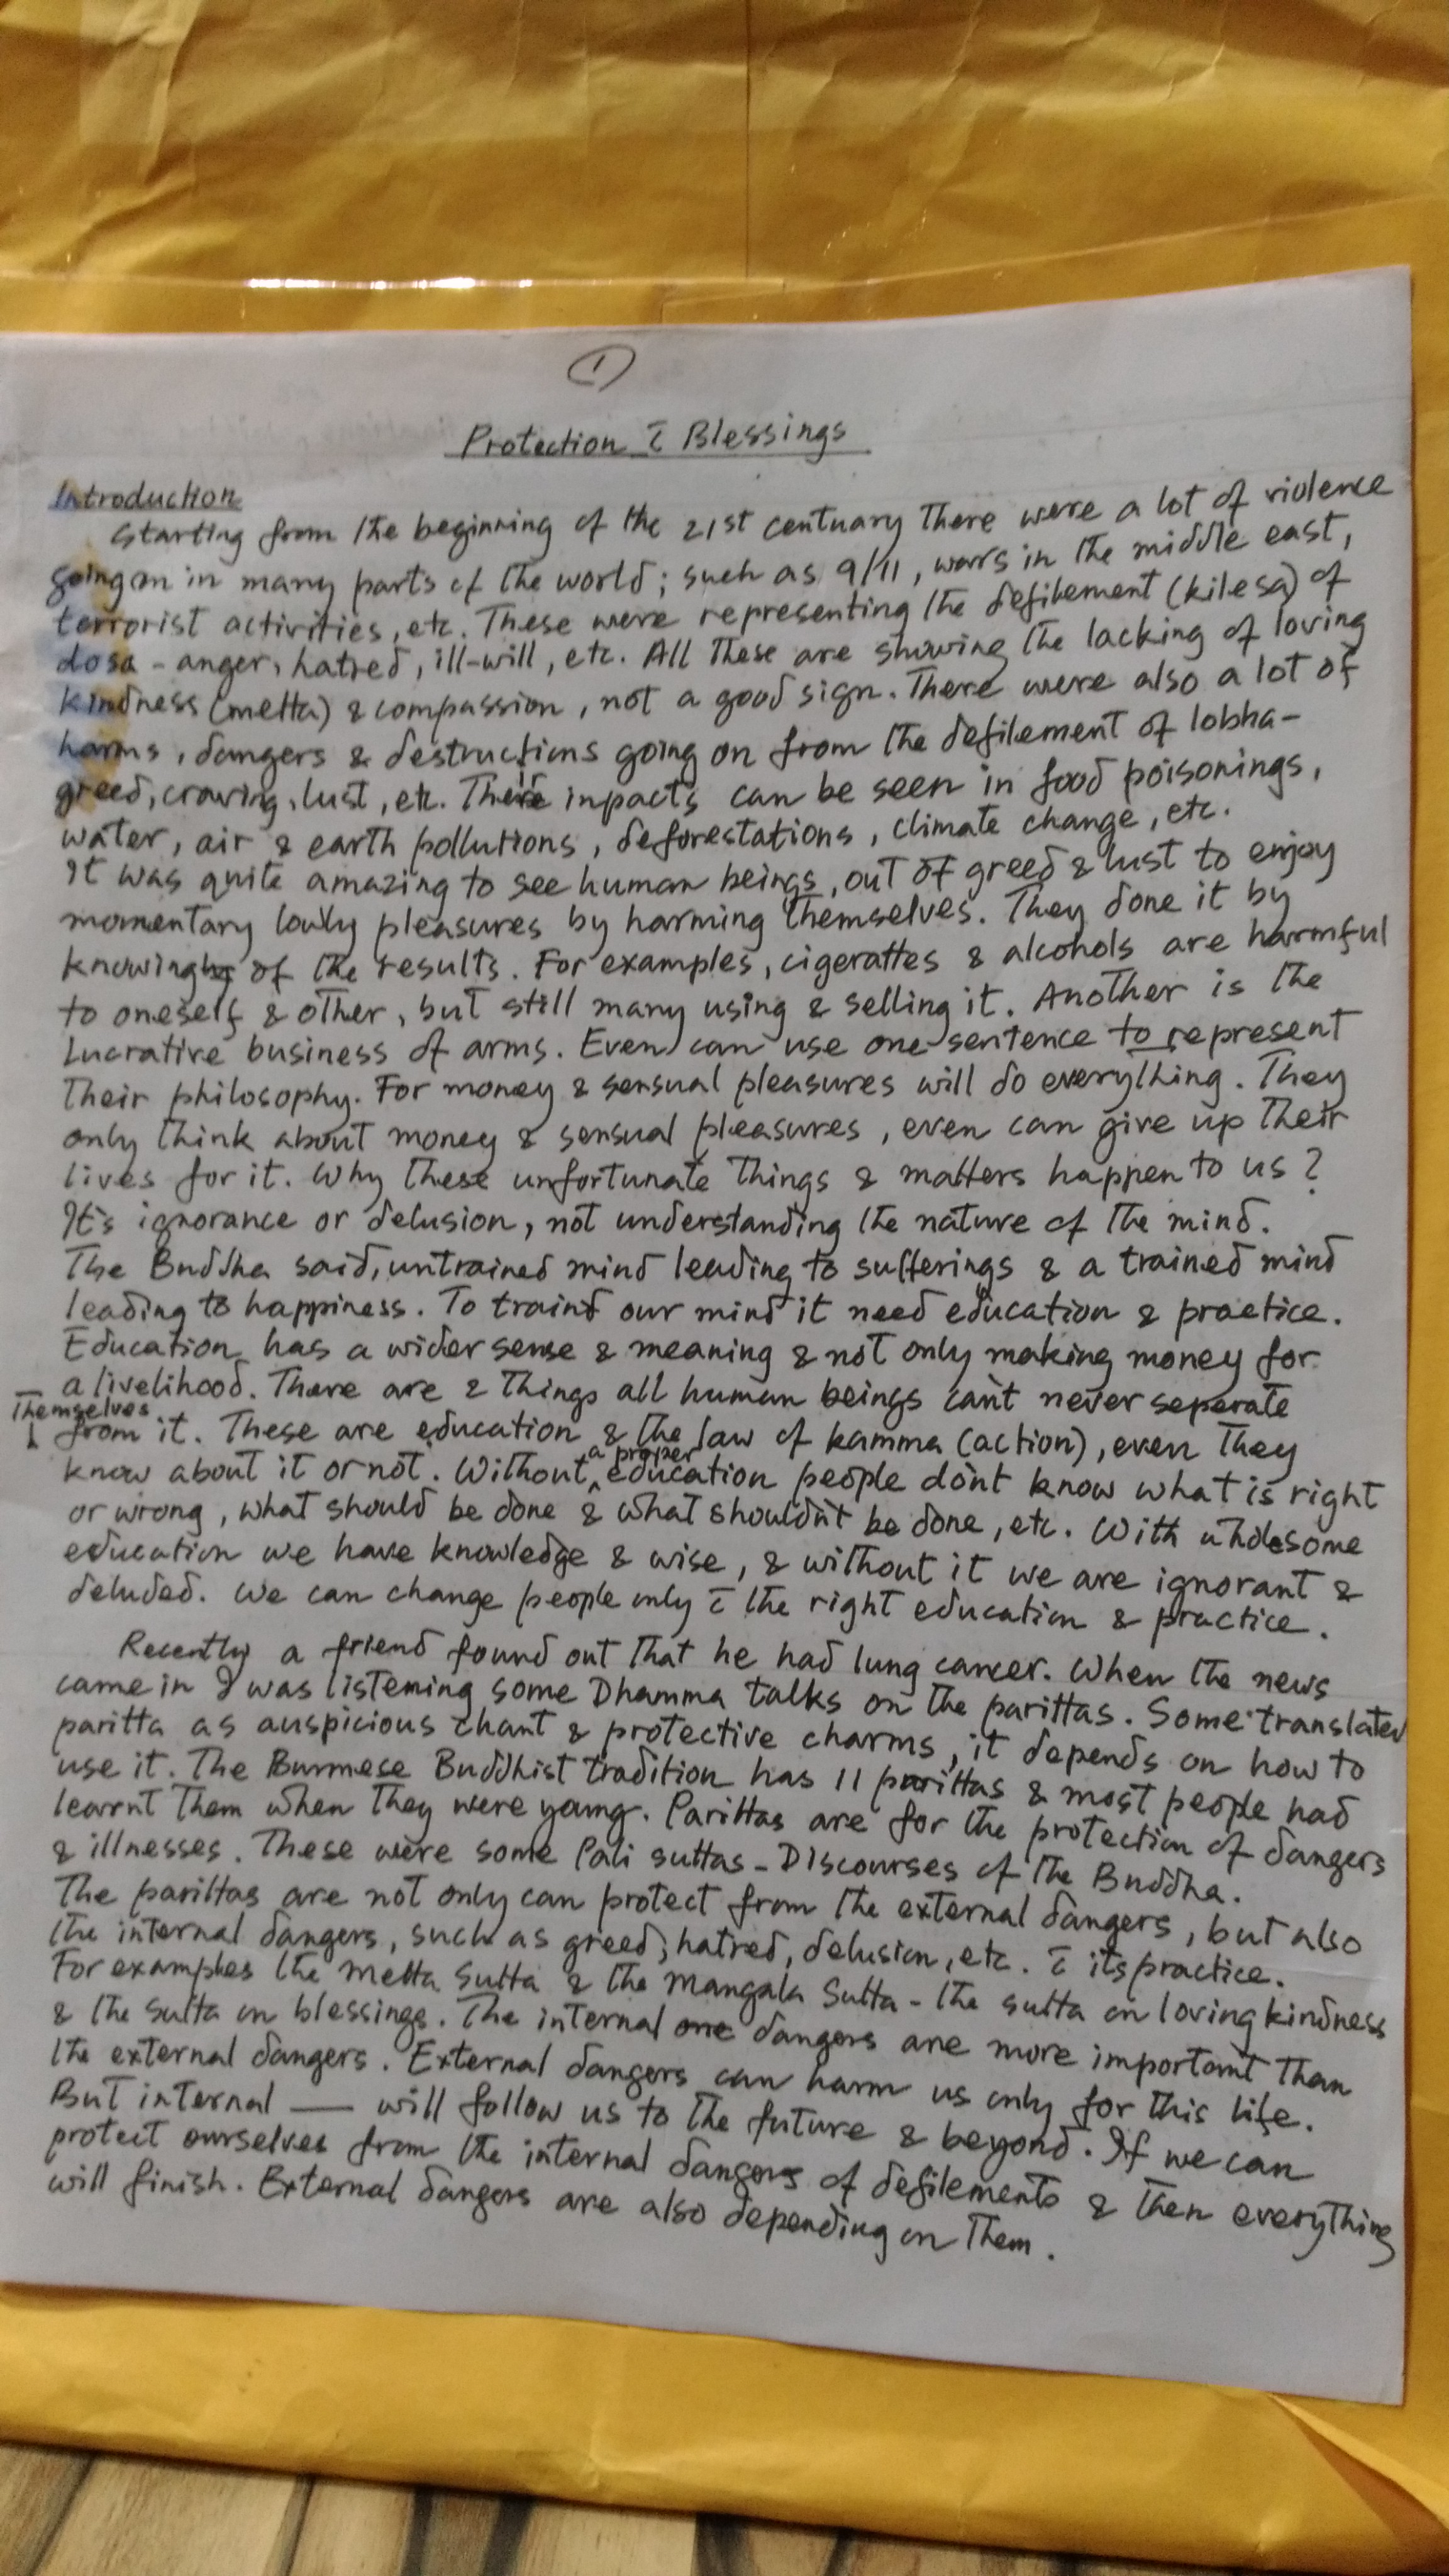 1
Protection c̄ Blessings
Introduction
Starting from the beginning of the 21st centuary there were a lot of violence
going on in many parts of the world; such as 9/11, wars in the middle east,
terrorist activities, etc. These were representing the defilement (kilesa) of
dosa - anger, hatred, ill-will, etc. All these are showing the lacking of loving
kindness (metta) & compassion, not a good sign. There were also a lot of
harms, dangers & destructions going on from the defilement of lobha-
greed, craving, lust, etc. Their inpacts can be seen in food poisonings,
water, air & earth pollutions, deforestations, climate change, etc.
It was quite amazing to see human beings, out of greed & lust to enjoy
momentary lowly pleasures by harming themselves. They done it by
knowing of the results. For examples, cigerattes & alcohols are harmful
to oneself & other, but still many using & selling it. Another is the
lucrative business of arms. Even can use one sentence to represent
their philosophy. For money & sensual pleasures will do everything. They
only think about money & sensual pleasures, even can give up their
lives for it. Why these unfortunate things & matters happen to us?
It's ignorance or delusion, not understanding the nature of the mind.
The Buddha said, untrained mind leading to sufferings & a trained mind
leading to happiness. To train our mind it need education & practice.
Education has a wider sense & meaning & not only making money for
a livelihood. There are 2 things all human beings can't never seperate
themselves
from it. These are education & the law of kamma (action), even they
know about it or not. Without a proper education people don't know what is right
or wrong, what should be done & what shouldn't be done, etc. With wholesome
education we have knowledge & wise, & without it we are ignorant &
deluded. We can change people only c̄ the right education & practice.
Recently a friend found out that he had lung cancer. When the news
came in I was listening some Dhamma talks on the parittas. Some translated
paritta as auspicious chant & protective charms, it depends on how to
use it. The Burmese Buddhist tradition has 11 parittas & most people had
learnt them when they were young. Parittas are for the protection of dangers
& illnesses. These were some Pali suttas - Discourses of the Buddha.
The parittas are not only can protect from the external dangers, but also
the internal dangers, such as greed, hatred, delusion, etc. c̄ its practice.
For examples the Metta Sutta & the Mangala Sutta - the sutta on loving kindness
& the sutta on blessings. The internal dangers are more important than
the external dangers. External dangers can harm us only for this life.
But internal — will follow us to the future & beyond. If we can
protect ourselves from the internal dangers of defilements & then everything
will finish. External dangers are also depending on them.